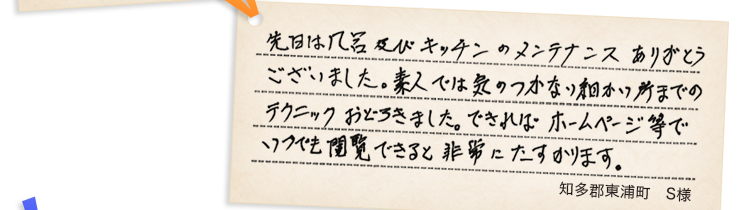 先日は风呂及びキッチンのメンテナンスありがとう
ございました。素人では気のつかない細かい所までの
テクニックおどろきました。できればホームページ等で
いつでも閲覧できると非常にたすかります。
知多郡東浦町　S様